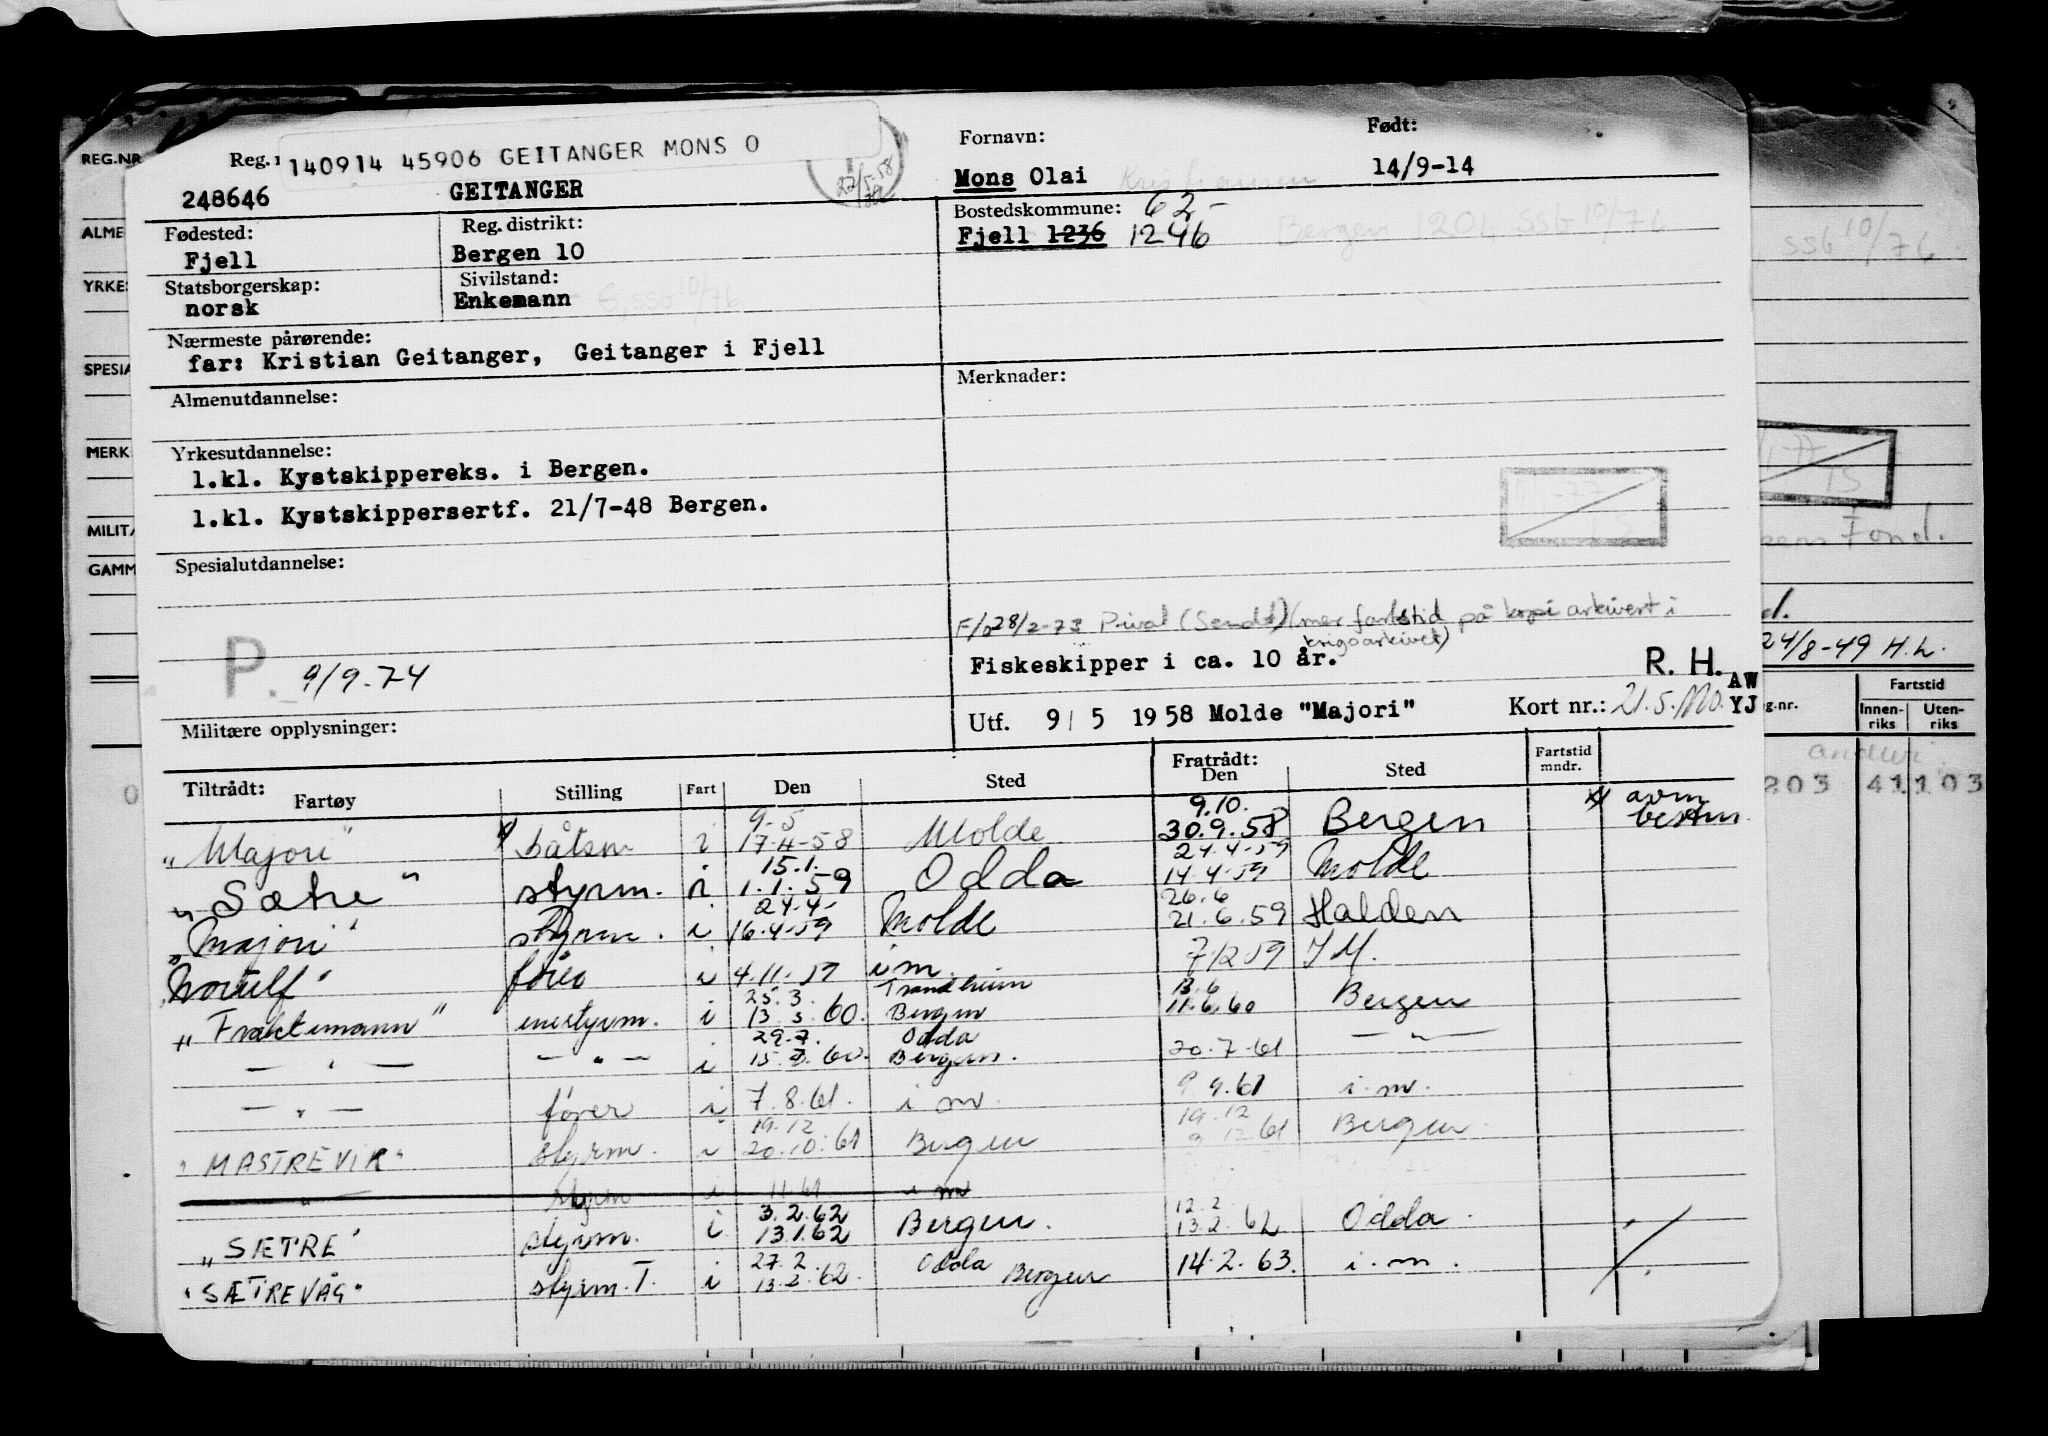 REG.NR
Reg. 140914 45906 GEITANGER MONS O
Fornavn: Født:
248646 GEITANGER 27/5-58 Mons Olai 14/9-14
ALME
Fødested: Reg. distrikt: Bostedskommune: 62-
Fjell Bergen 10 Fjell 1236 1246 Bergen 1201 SSB 10/76
SSB 10/76
YRKES
Statsborgerskap: Sivilstand:
norsk Enkemann G, SSB 10/76
Nærmeste pårørende:
far: Kristian Geitanger, Geitanger i Fjell
SPESIA
Almenutdannelse: Merknader:
MERK
Yrkesutdannelse:
1.kl. Kystskippereks. i Bergen.
1.kl. Kystskippersertf. 21/7-48 Bergen.
MILITÆ
GAMM
Spesialutdannelse:
Fond.
F/o 28/2-73 Privat (Sendt) (mer fartstid på kopi arkivert i
krigsarkivet)
P. 9/9-74 Fiskeskipper i ca. 10 år. R. H. 24/8-49 H.L.
AW
Militære opplysninger: Utf. 9/5 1958 Molde "Majori" Kort nr.: 21.5. YJ
g.nr. Fartstid
Innen-riks Uten-riks
203 41 1 03
Tiltrådt: Fartøy Stilling Fart Den Sted Fratrådt: Den Sted Fartstid mndr.
9-5 9.10. avm
"Majori" båtsm i 17-4-58 Molde 30.9.58 Bergen bestm.
15.1. 24.4.59
"Sætre" styrm. i 1.1.59 Odda 14.4.59 Molde
24.4. 26.6
"Majori" styrm. i 16.4.59 Molde 21.6.59 Halden
Norulf" fører i 4.11.59 i m. 7/12 59 I M.
25.3. Trondheim 13.6
"Fraktemann" enestyrm. i 13.3.60. Bergen 11.6.60 Bergen
29.7. Odda
— " — — " — i 15.7.60. Bergen. 20.7.61 — " —
— " — fører i 7.8.61. i m. 9 9.61 i. m.
19.12 19.12
"MASTREVIK" styrm. i 20.10.61 Bergen 9.12.61 Bergen.
" styrm i 11.61 i m
3.2.62 12.2
"SÆTRE" styrm. i 13.1.62 Bergen. 13.2.62 Odda.
27.2. Odda
"SÆTREVÅG" styrm. T. i 13.2.62. Bergen 14.2.63. i. m.